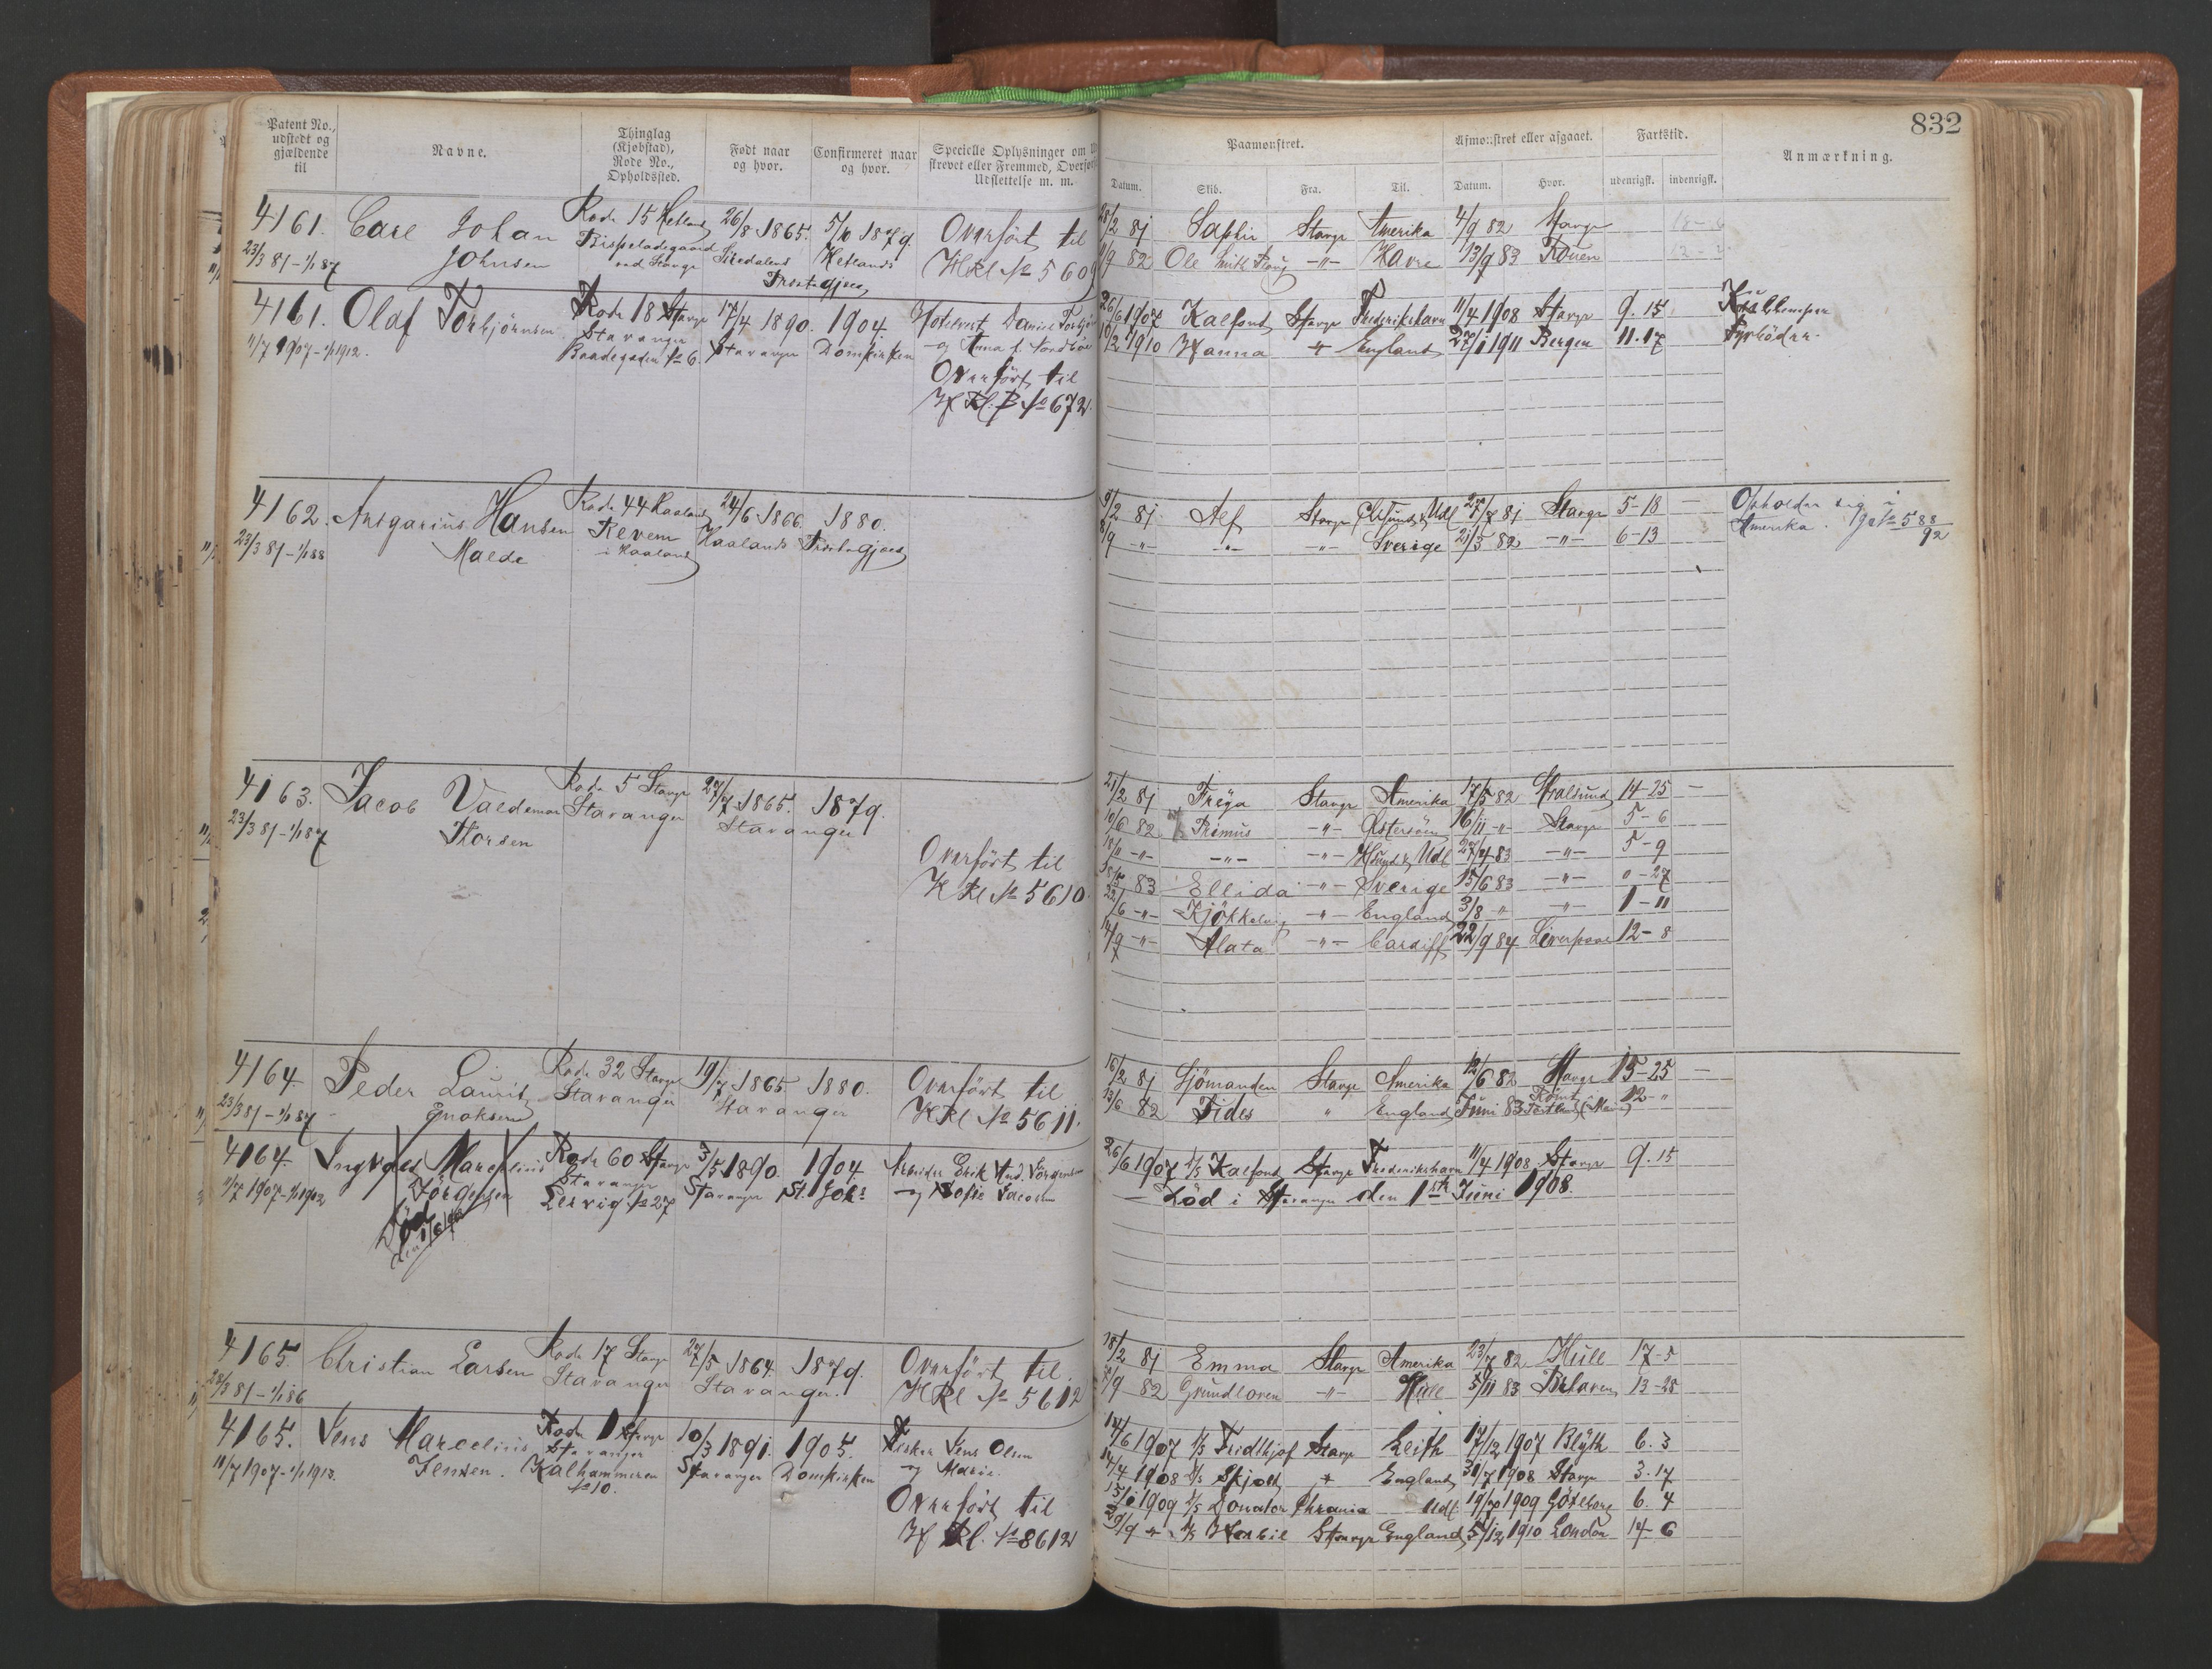 832
Patent No., udstedt og gjældende til
Navne.
Thinglag (Kjøbstad), Rode No., Opholdssted.
Født naar og hvor.
Confirmeret naar og hvor.
Specielle Oplysninger om
strevet eller Fremmed, Overfør
Udslettelse m. m.
Paamønstret.
Afmønstret eller afgaaet.
Fartstid.
Anmærkning.
Datum. Skib. Fra. Til. Datum. Hvor. udenrigsk. indenrigsk.
4161. Carl Johan Johnsen
23/3 81 – 1/1 87
Rode 15 Hetland
Bispeladegaard
ved Stavgr
26/8 1865.
5/10 1879.
Hetlands
Præstegjæld
Overført til
HRl No 5609
28/2 81 Saphir Stavgr Amerika 4/9 82 Stavgr
11/9 82 Ole Smith Ploug –"– Havre 13/9 83 Rouen
4161. Olaf Torbjörnsen
11/7 1907 – 1/1 1912.
Rode 18 Stavgr
Stavanger
Baadegaden No 6
17/4 1890.
Stavanger
1904.
Domkirken
og Anna f. Nordbö
Overført til
H Rl. B No 672
26/6 1907 Kalfond Stavgr Frederikshavn 11/4 1908 Stavgr 9. 15
10/2 1910 Hanna " England 27/1 1911 Bergen 11. 17
Kullemper
Fyrböder
4162. Ansgarius Hansen Malde
23/3 81 – 1/1 88
Rode 44 Haaland
Revem
i Haaland
24/6 1866.
Haalands
1880.
Præstegjæld
9/2 81 Alf Stavgr Ølsund & Udl 27/7 81 Stavgr 5-18 –
8/9 –"– –"– –"– Sverige 21/3 82 –"– 6-13
Opholder sig i
Amerika. Jr No 588/92
4163. Jacob Valdemar Thorsen
23/3 81 – 1/1 87
Rode 5 Stavgr
Stavanger
27/7 1865.
Stavanger
1879.
Overført til
H Rl No 5610
21/2 81 Freya Stavgr Amerika 17/5 82 Stralsund 14-25 –
10/6 82 Primus –"– Østersöen 16/11 –"– Stavgr 5-6
–"– –"– –"– Hsund & Udl 27/4 83 –"– 5-9
18/5 83 Ellida –"– Sverige 15/6 83 –"– "-27
22/6 –"– Kjökkelvig –"– England 3/8 " –"– 1-11
14/9 –"– Alata –"– Cardiff 22/9 84 Liverpool 12-8
4164. Peder Laurits Enoksen
23/3 81 – 1/1 87
Rode 32 Stavgr
Stavanger
19/7 1865.
Stavanger
1880.
Overført til
H Rl No 5611.
16/2 81 Sjömanden Stavgr Amerika 12/6 82 Stavgr 15-25 –
13/6 82 Fides " England Juni 83 Römt Portland (Maine) 12-"
4164. Ingvald Marcelius Jörgensen
11/7 1907 – 1/1 1912
Död
den 1/6 1908
Rode 60 Stavgr
Stavanger
Lervig No 27
3/5 1890.
Stavanger
1904
St. Johs
Arbeider Erik And. Jörgensen
og Sofie Jacobsen
26/6 1907 D/S Kalfond Stavgr Frederikshavn 11/4 1908 Stavgr 9. 15
– Död i Stavanger den 1ste Juni 1908.
4165. Christian Larsen
23/3 81 – 1/1 86
Rode 17 Stavgr
Stavanger
27/5 1864.
Stavanger.
1879.
Overført til
H Rl No 5612
18/2 81 Emma Stavgr Amerika 23/7 82 Hull 17-5
/9 82 Grundloven –"– Hull 5/11 83 13-28
4165. Jens Marcelius Jensen.
11/7 1907 – 1/1 1913.
Rode 1 Stavgr
Stavanger
Kalhammeren
No 10.
10/3 1891.
Stavanger
1905.
Domkirken
Fisker Jens Olsen
og Marie.
Overført til
H Rl. No 8612
14/6 1907 D/S Fridthjof Stavgr Leith 17/12 1907 Blyth 6. 3
14/4 1908 D/S Skjold " England 31/7 1908 Stavgr 3. 17
15/1 1909 D/S Donator Chrania Udl. 19/7 1909 Göteborg 6. 4
29/9 " D/S Stavgr England 5/12 1910 London 14-6